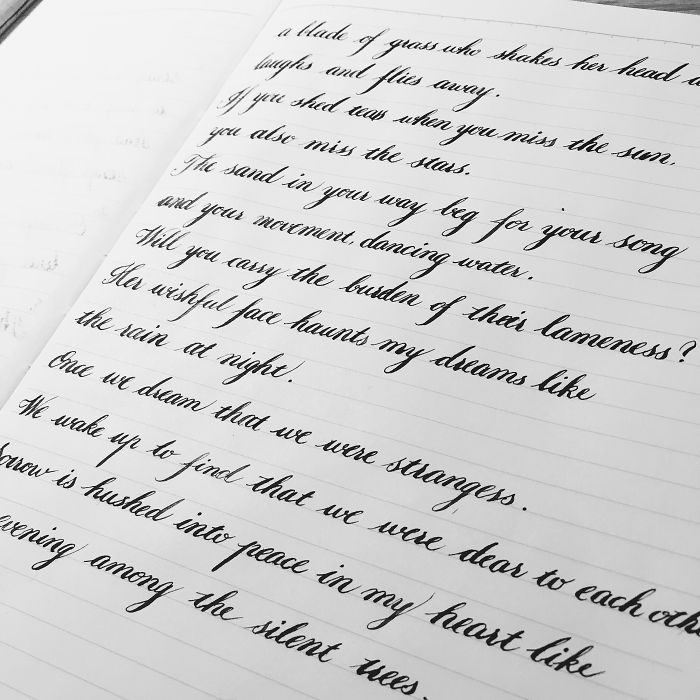 a blade of grass who shakes her head a
laughs and flies away.
If you shed tears when you miss the sun,
you also miss the stars.
The sand in your way beg for your song
and your movement, dancing water.
Will you carry the burden of their lameness?
Her wishful face haunts my dreams like
the rain at night.
Once we dream that we were strangers.
We wake up to find that we were dear to each oth
orrow is hushed into peace in my heart like
evening among the silent trees.